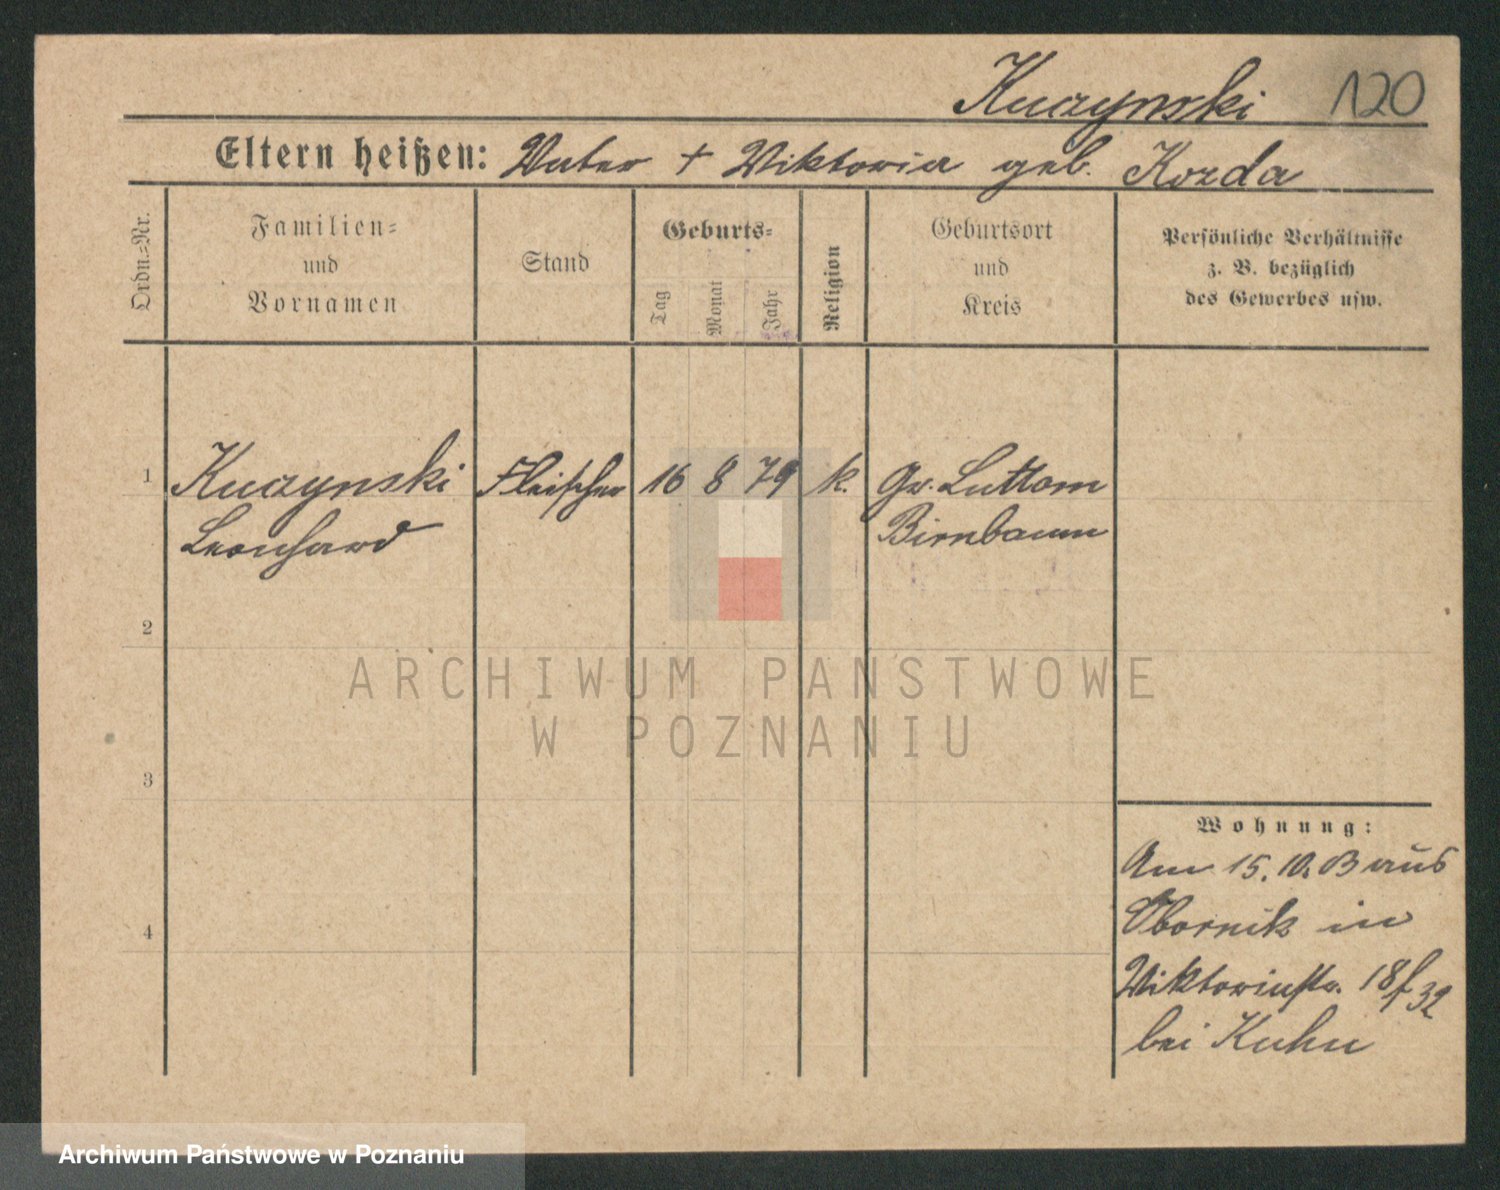 Kuczynski 120
Eltern heißen: Vater + Viktoria geb. Kozda
Ordn.=Nr.
Familien=
und
Vornamen
Stand
Geburts=
Tag
Monat
Jahr
Religion
Geburtsort
und
Kreis
Persönliche Verhältnisse
z. B. bezüglich
des Gewerbes usw.
1 Kuczynski Fleischer 16 8 79 k. Gr. Luttom
Leonhard Birnbaum
2
3
4
Wohnung:
Am 15. 10. aus
Obornik in
Viktoriastr. 18 f 32
bei Kuhn
ARCHIWUM PANSTWOWE
W POZNANIU
Archiwum Państwowe w Poznaniu